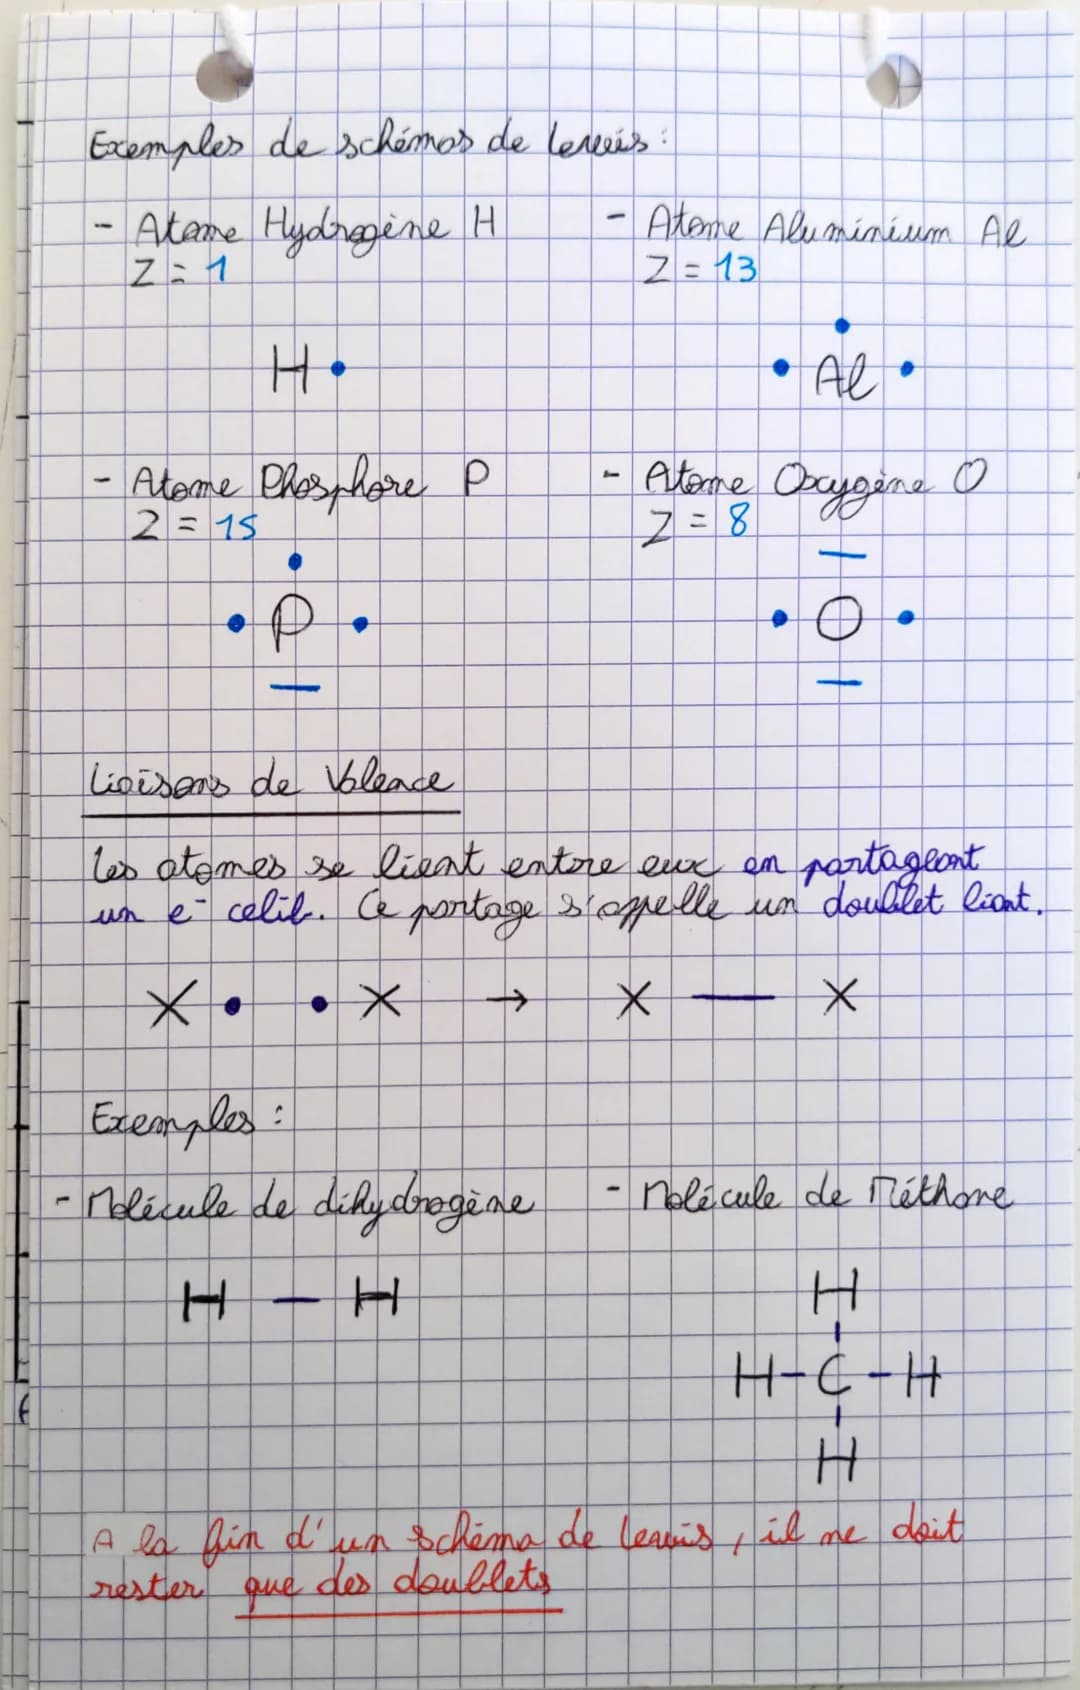 Exemples de schémas de lewis :
- Atome Hydrogène H
Z = 1
H •
- Atome Aluminium Al
Z = 13
• Al •
- Atome Phosphore P
Z = 15
• P •
- Atome Oxygène O
Z = 8
• O •
Liaisons de Valence
Les atomes se lient entre eux en partageant
un e⁻ celib. Ce partage s'appelle un doublet liant.
X • • X → X — X
Exemples :
- Molécule de dihydrogène
H — H
- Molécule de Méthane
H
H - C - H
H
A la fin d'un schéma de lewis, il ne doit
rester que des doublets